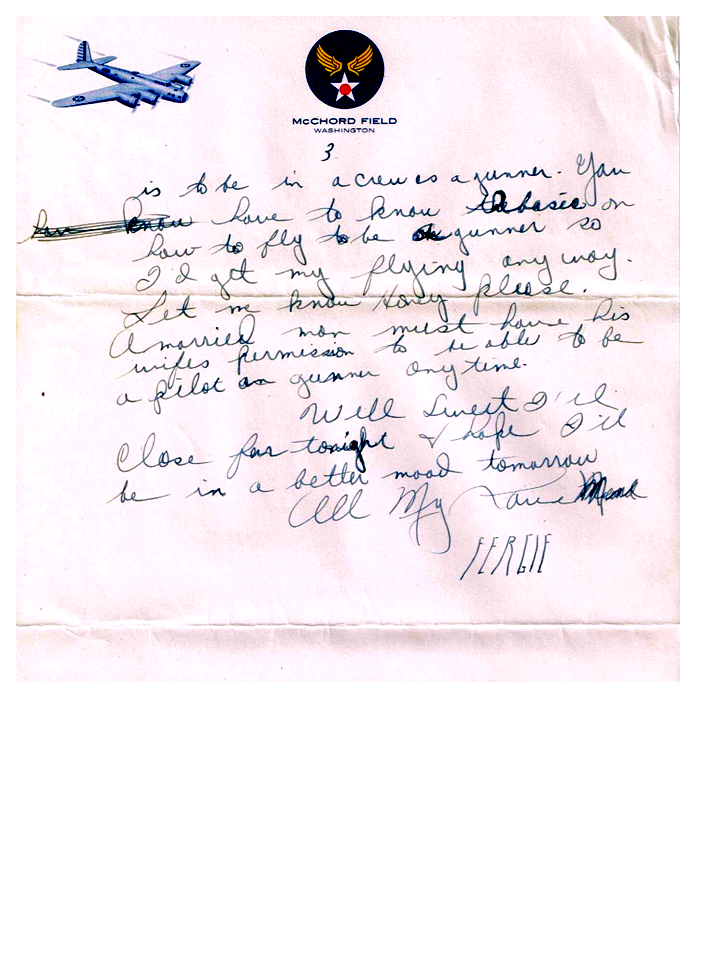 McCHORD FIELD
WASHINGTON
3
is to be in a crew as a gunner. You
know have to know the basic on
how to fly to be gunner so
I'd get my flying any way.
Let me know Hony please.
A married man must have his
wifes permission to be able to be
a pilot or gunner anytime.
Well Sweet I'll
Close for tonight & hope I'll
be in a better mood tomorrow
All My Love
FERGIE